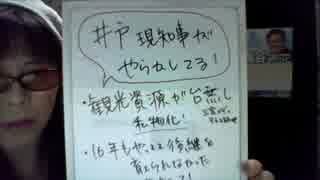 井戸現知事が
やらかしてる!
・観光資源が台無し
私物化!
・16年もやって後継を
育てられなかった